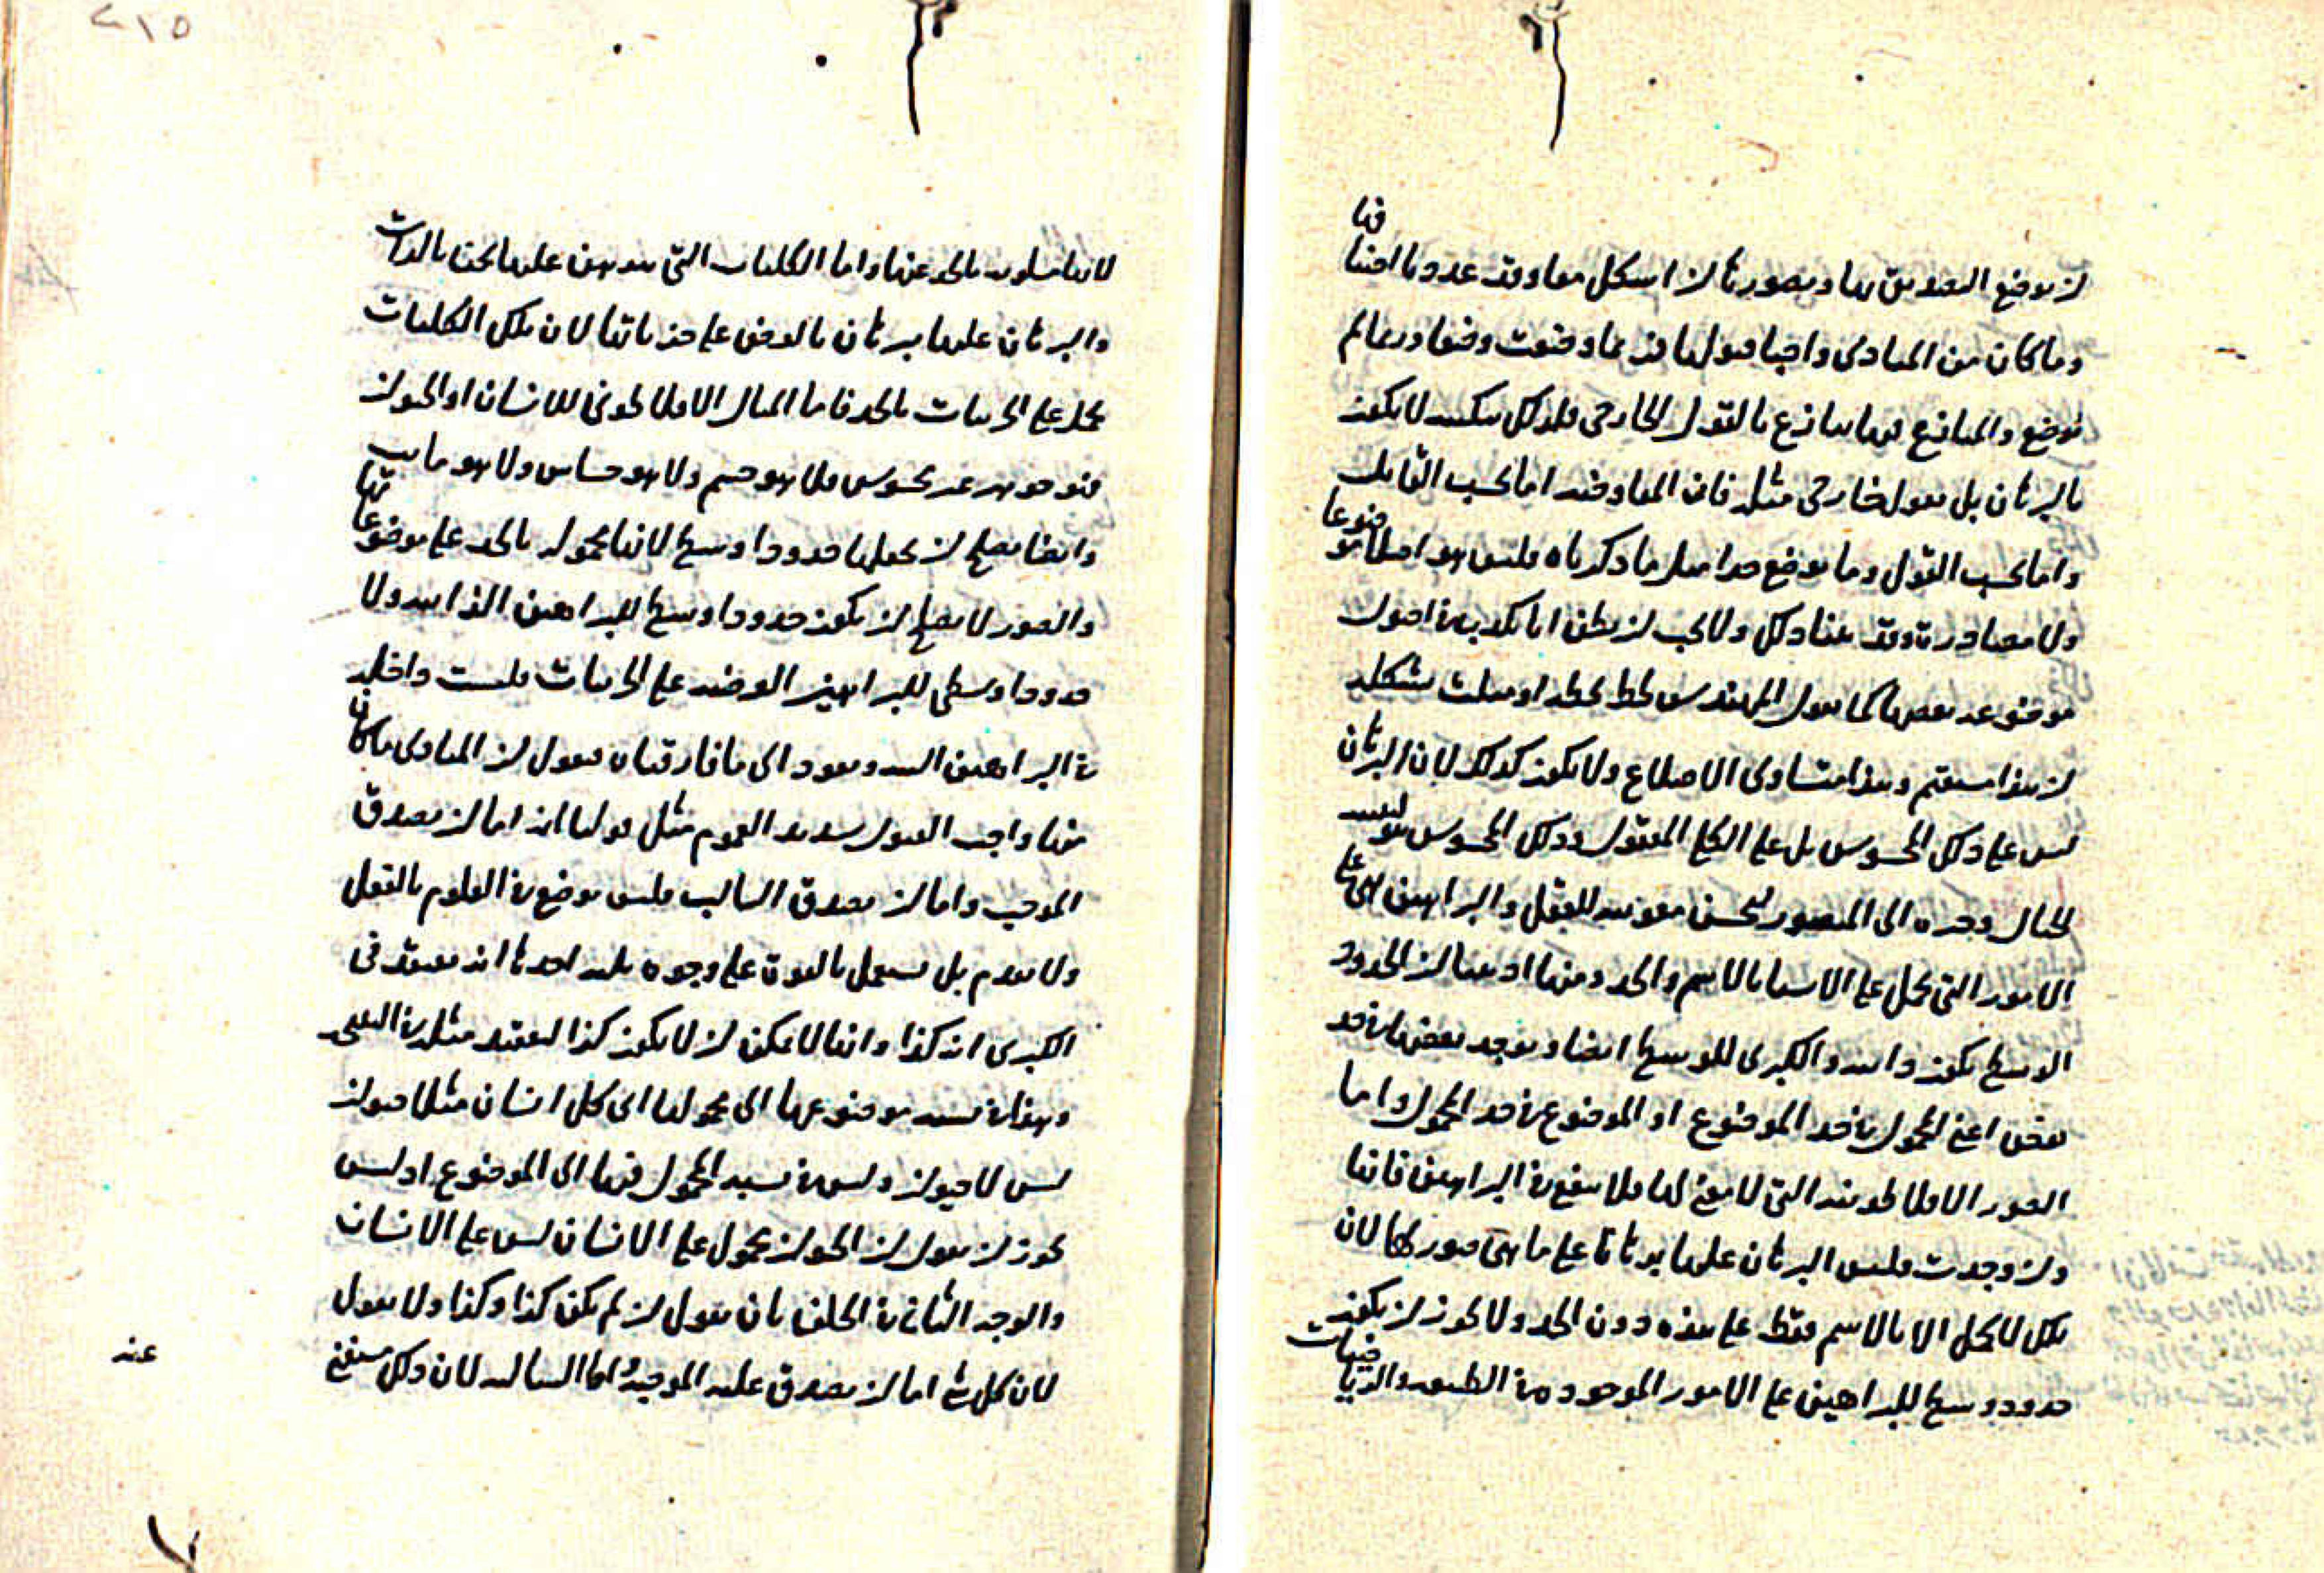 ان يوضع التصديق بها وبصورتها ان اشكل معا وقد عددنا اصنافها
وما كان من المبادى واجبا قبولها فربما وضعت وضعا وربما لم
توضع والمنازع فيها ينازع بالقول الخارجى فلذلك تبكيته لا يكون
بالبرهان بل بقول خارجى مثله فان المعاوضه اما بحسب القايل
واما بحسب القول وما يوضع حدا مثل ما ذكرناه فليس هو اصلا موضوعا
ولا مصادرة وقد بينا ذلك ولا يجب ان يظن انا نكذب فى اصول
موضوعه بعضها كما يقول المهندس لخط يخطه او مثلث يشكله
ان هذا مستقيم وهذا متساوى الاضلاع ولا يكون كذلك لان البرهان
ليس على ذلك المحسوس بل على الكلى المعقول وذلك المحسوس هو
الخيال وجره الى التصور ليحسن معونته للعقل والبراهين هى على
الامور التى تحمل على الاشيا بالاسم والحد ومنها اذ بينا ان الحدود
الوسطى تكون ذاتيه والكبرى للوسطى ايضا ويوجد بعضها فى حد
بعض اعنى المحمول فى حد الموضوع او الموضوع فى حد المحمول واما
الصور الافلاطونيه التى لا معنى لها فلا ينفع فى البراهين فانها
وان وجدت فليس البرهان عليها برهانا على ما هى صور لها لان
تلك لا تحمل الا بالاسم فقط على هذه دون الحد ولا يجوز ان يكون
حدود وسطى للبراهين على الامور الموجوده فى الطبيعه والرياضيات
لانها مسلوبه بالحد عنها واما الكليات التى نبرهن عليها نحن بالذات
والبرهان عليها برهان بالعرض على جزئياتها لان تلك الكليات
تحمل على الجزئيات بالحد فاما المثال الافلاطونى للانسان او الحيوان
فهو جوهر غير محسوس فلا هو جسم ولا هو حساس ولا هو مايت
وايضا يصلح ان نجعلها حدودا وسطى لانها محموله بالحد على موضوعاتها
والصور لا يصلح ان يكون حدودا وسطى للبراهين الذاتيه ولا
حدودا وسطى للبراهين العرضيه على الجزئيات فليست داخله
فى البراهين البته ونعود الى ما فارقناه فنقول ان المبادى ما كان
منها واجب القبول شديد العموم مثل قولنا انه اما ان يصدق
الموجب واما ان يصدق السالب فليس يوضع فى العلوم بالفعل
ولا يقدم بل يستعمل بالقوة على وجوه ثلثه احدها انه يعتقد فى
الكبرى انه كذا وانها لا يمكن ان لا يكون كذا ليعتقد مثله فى النتيجه
وهذا فى نسبه موضوعها الى محمولها اى كل انسان مثلا حيوان
ليس لا حيوان وليس فى نسبه المحمول فيها الى الموضوع اذ ليس
يجوز ان نقول ان الحيوان محمول على الانسان ليس على الانسان
والوجه الثانى فى الخلف بان نقول ان لم يكن كذا وكذا ولا نقول
لان كل شى اما ان يصدق عليه الموجبه واما السالبه لان ذلك مستغنى
عنه